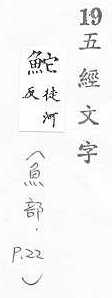 19五經文字
鮀徒河反
（魚部．P.22）